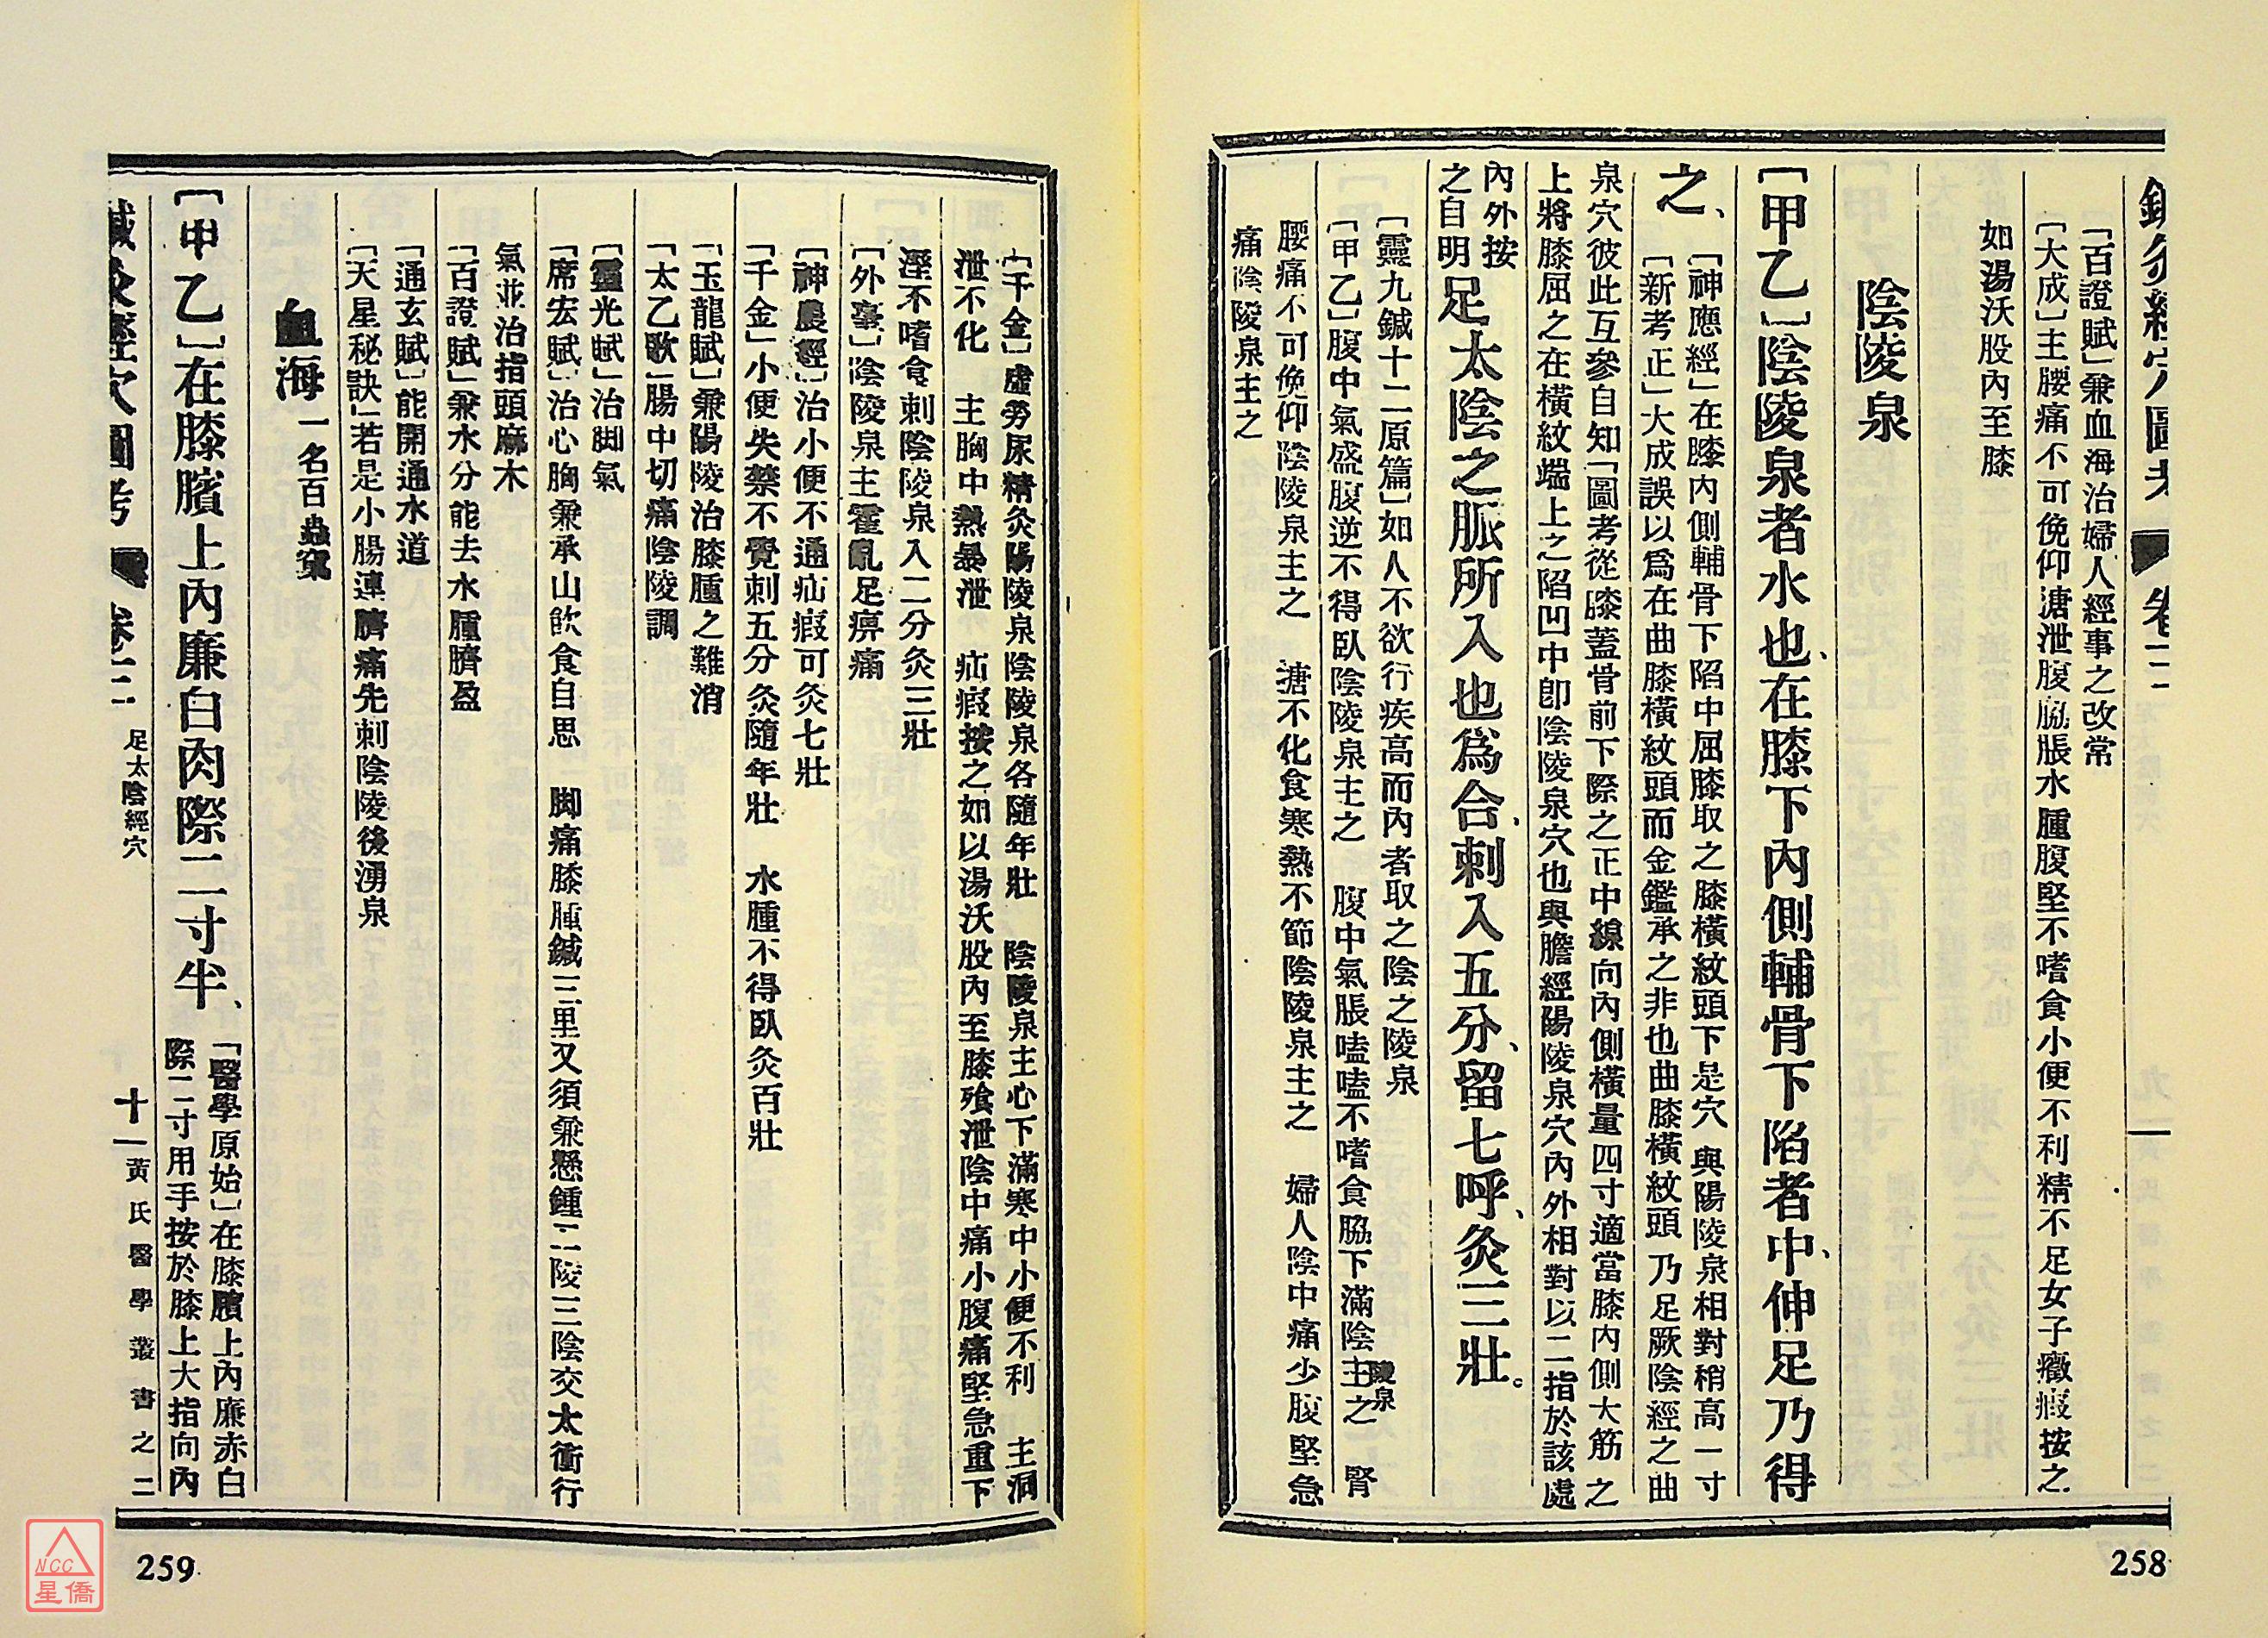 鍼灸經穴圖考 卷三
「百證賦」兼血海治婦人經事之改常
「大成」主腰痛不可俛仰溏泄腹脇脹水腫腹堅不嗜食小便不利精不足女子癥瘕按之
如湯沃股內至膝
陰陵泉
「甲乙」陰陵泉者水也、在膝下內側輔骨下陷者中、伸足乃得
之、
「神應經」在膝內側輔骨下陷中屈膝取之膝橫紋頭下是穴 與陽陵泉相對稍高一寸
「新考正」大成誤以爲在曲膝橫紋頭而金鑑承之非也曲膝橫紋頭乃足厥陰經之曲
泉穴彼此互參自知「圖考從膝蓋骨前下際之正中線向內側橫量四寸適當膝內側大筋之
上將膝屈之在橫紋端上之陷凹中卽陰陵泉穴也與膽經陽陵泉穴內外相對以二指於該處
內外按
之自明
足太陰之脈所入也爲合、刺入五分、留七呼、灸三壯。
「靈九鍼十二原篇」如人不欲行疾高而內者取之陰之陵泉
「甲乙」腹中氣盛腹逆不得臥陰陵泉主之 腹中氣脹嗑嗑不嗜食脇下滿陰陵泉主之 腎
腰痛不可俛仰陰陵泉主之 溏不化食寒熱不節陰陵泉主之 婦人陰中痛少腹堅急
痛陰陵泉主之
258
「千金」虛勞尿精灸陽陵泉陰陵泉各隨年壯 陰陵泉主心下滿寒中小便不利 主洞
泄不化 主胸中熱暴泄 疝瘕按之如以湯沃股內至膝飱泄陰中痛小腹痛堅急重下
溼不嗜食刺陰陵泉入二分灸三壯
「外臺」陰陵泉主霍亂足痹痛
「神農經」治小便不通疝瘕可灸七壯
「千金」小便失禁不覺刺五分灸隨年壯 水腫不得臥灸百壯
「玉龍賦」兼陽陵治膝腫之難消
「太乙歌」腸中切痛陰陵調
「靈光賦」治脚氣
「席宏賦」治心胸兼承山飮食自思 脚痛膝腫鍼三里又須兼懸鍾二陵三陰交太衝行
氣並治指頭麻木
「百證賦」兼水分能去水腫臍盈
「通玄賦」能開通水道
「天星秘訣」若是小腸連臍痛先刺陰陵後湧泉
血海 一名百蟲窠
「甲乙」在膝臏上內廉白肉際二寸半、
「醫學原始」在膝臏上內廉赤白
際二寸用手按於膝上大指向內
鍼灸經穴圖考 卷三 足太陰經穴 十一 黃氏醫學叢書之二
259
NCC
星僑